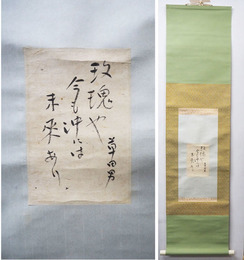 玫瑰や
今も沖には
未来あり
草田男